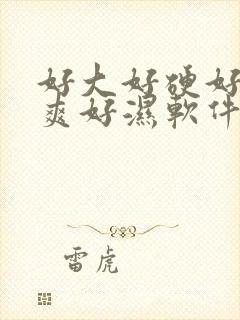 好大好硬好
爽好濕軟件
雷虎